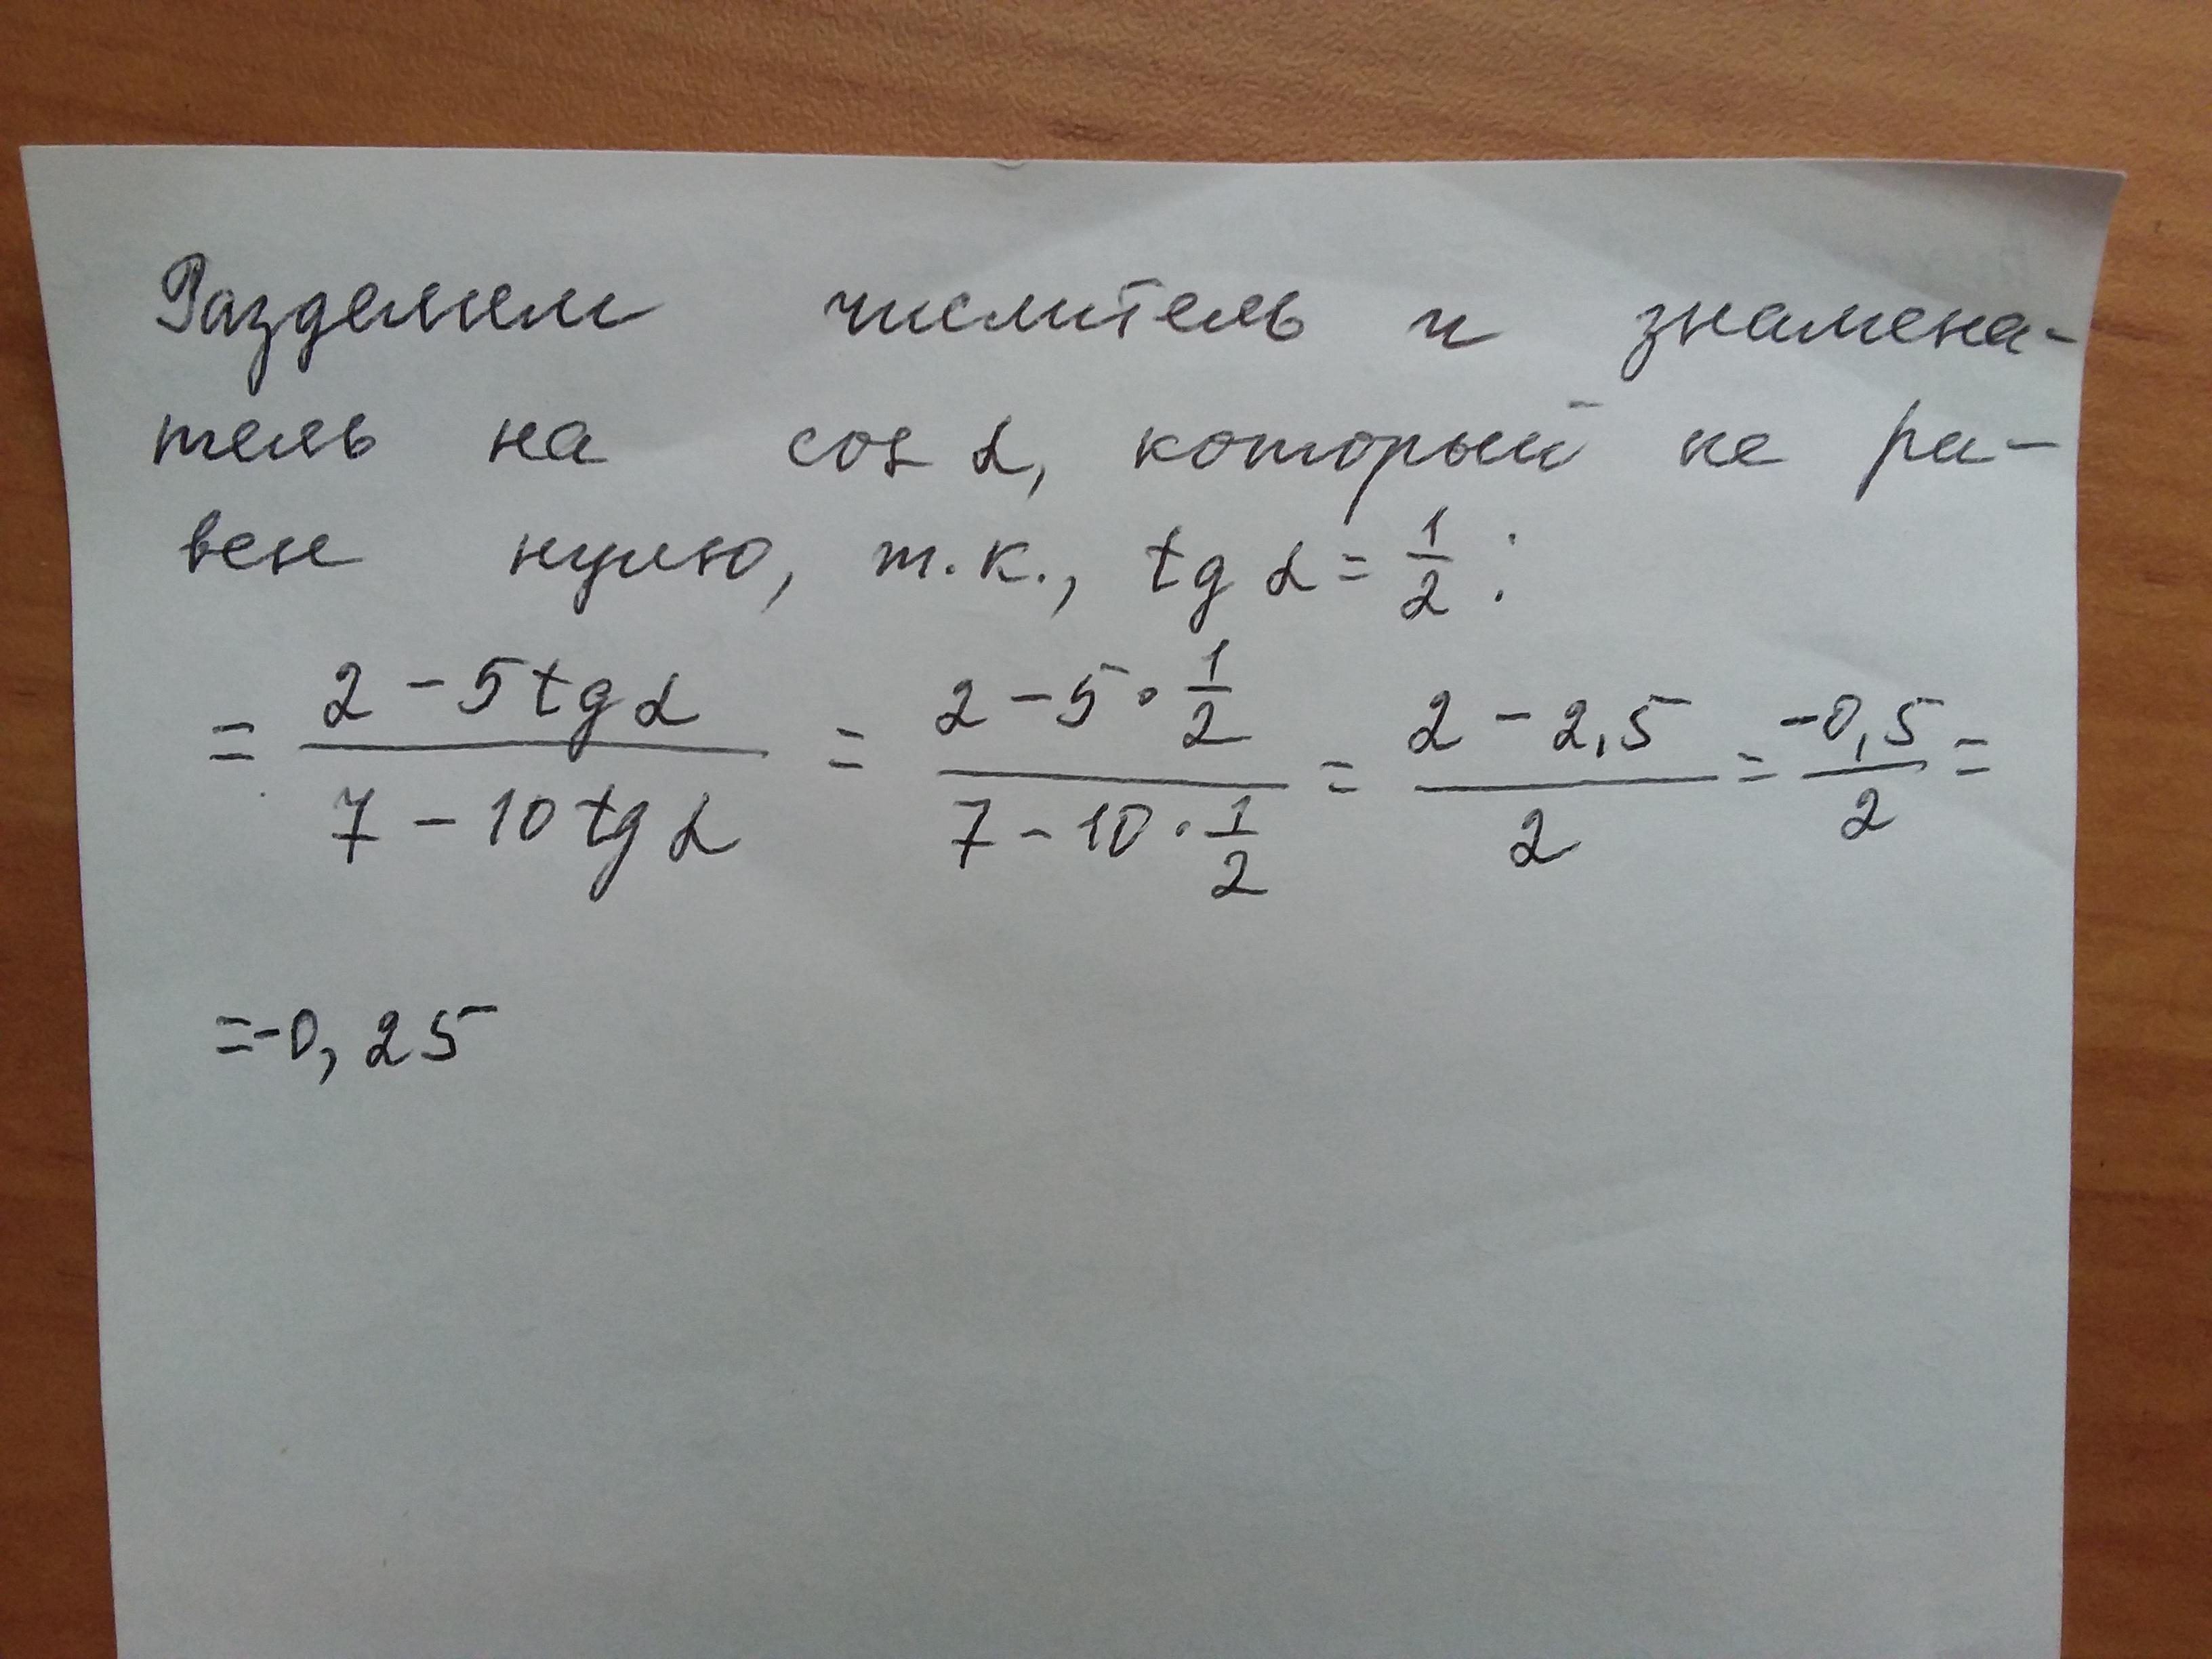 Разделим числитель и знамена-
тель на cos α, который не ра-
вен нулю, т.к., tg α = 1/2 :
= (2 - 5 tg α)/(7 - 10 tg α) = (2 - 5 · 1/2)/(7 - 10 · 1/2) = (2 - 2,5)/2 = -0,5/2 =
= -0,25